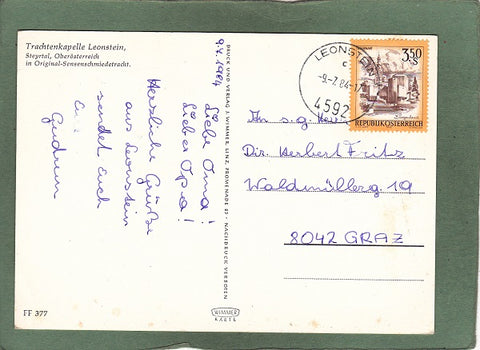 Trachtenkapelle Leonstein,
Steyrtal, Oberösterreich
in Original-Sensenschmiedetracht.
9.7.1984
Liebe Oma!
Lieber Opa!
Herzliche Grüße
aus Leonstein
sendet Euch
Gudrun
DRUCK UND VERLAG: WIMMER, LINZ, PROMENADE 23 - NACHDRUCK VERBOTEN
WIMMER
KARTE
FF 377
LEONSTEIN
c
-9.-7.84-
4592
3.50
S
REPUBLIK ÖSTERREICH
An s. g.
Dir. Herbert Fritz
Waldmüllerg. 19
8042 GRAZ